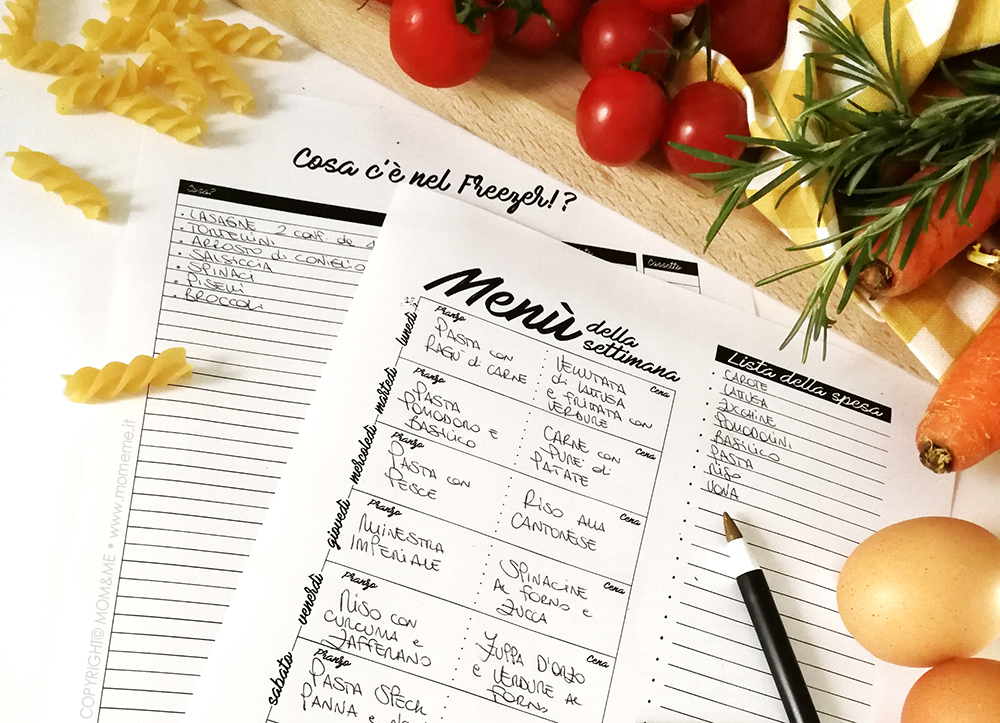 Cosa c'è nel Freezer!?
Cosa?
Cassetto
LASAGNE 2 CONF. da
TORTELLINI
ARROSTO di CONIGLIO
SALSICCIA
SPINACI
PISELLI
BROCCOLI
COPYRIGHT© MOM&ME • www.momeme.it
Menù della
settimana
lunedì
Pranzo
PASTA CON
RAGU' di CARNE
Cena
VELLUTATA
di LATTUGA
E FRITTATA CON
VERDURE
martedì
Pranzo
PASTA
POMODORO E
BASILICO
Cena
CARNE CON
PURE' di
PATATE
mercoledì
Pranzo
PASTA CON
PESCE
Cena
RISO ALLA
CANTONESE
giovedì
Pranzo
MINESTRA
IMPERIALE
Cena
SPINACINE
AL FORNO E
ZUCCA
venerdì
Pranzo
RISO CON
CURCUMA E
ZAFFERANO
Cena
ZUPPA D'ORZO
E VERDURE AL
FORNO
sabato
Pranzo
PASTA SPECK
PANNA E
Lista della spesa
CAROTE
LATTUGA
ZUCCHINE
POMODORINI
BASILICO
PASTA
RISO
UOVA